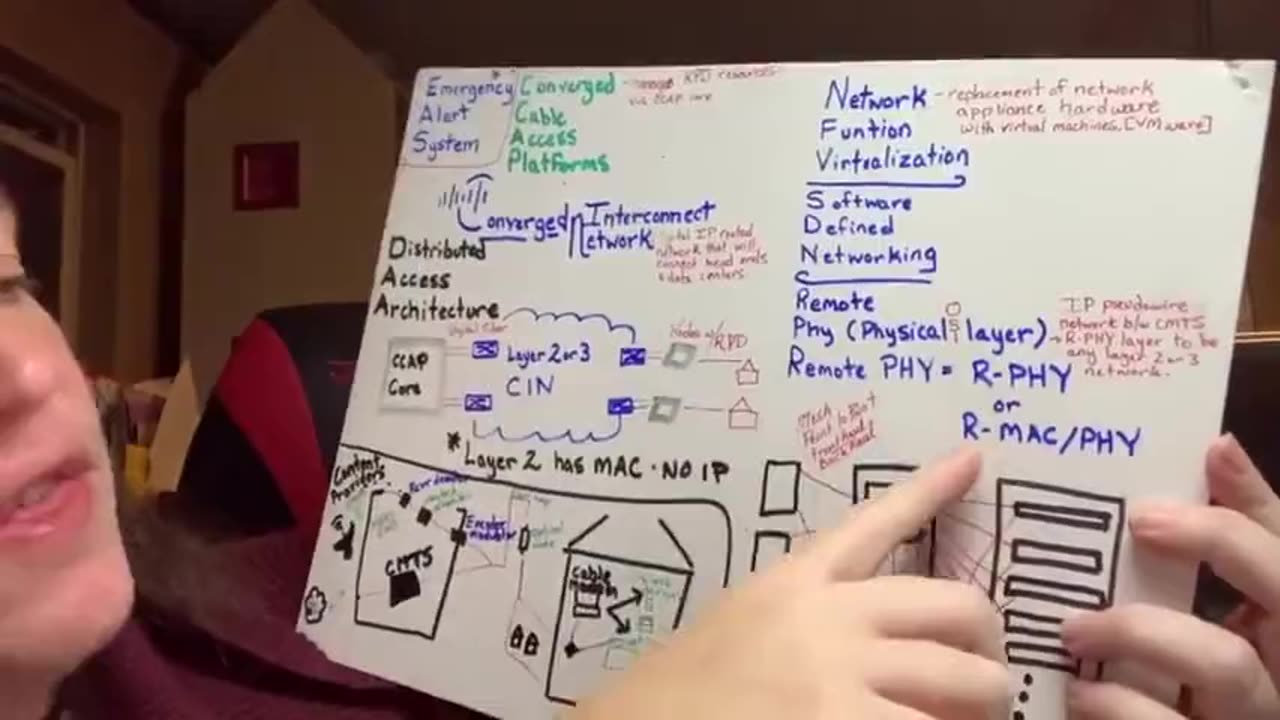 Emergency
Alert
System
Converged - manage RPD resources
via CCAP core
Cable
Access
Platforms
Converged Interconnect
Network
IP routed
network that will
connect head ends
& data centers
Distributed
Access
Architecture
Digital fiber
Nodes w/RPD
CCAP
Core
Layer 2 or 3
CIN
* Layer 2 has MAC - NO IP
Content
Providers
CMTS
Encoder
modulator
cable
modem
Network - replacement of network
appliance hardware
with virtual machines. [VMware]
Funtion
Virtualization
Software
Defined
Networking
Remote
Phy (Physical layer)
OSI
IP pseudowire
network b/w CMTS
R-PHY layer to be
any layer 2 or 3
network.
Remote PHY = R-PHY
or
R-MAC/PHY
Mesh
Point to Point
Fronthaul
Backhaul